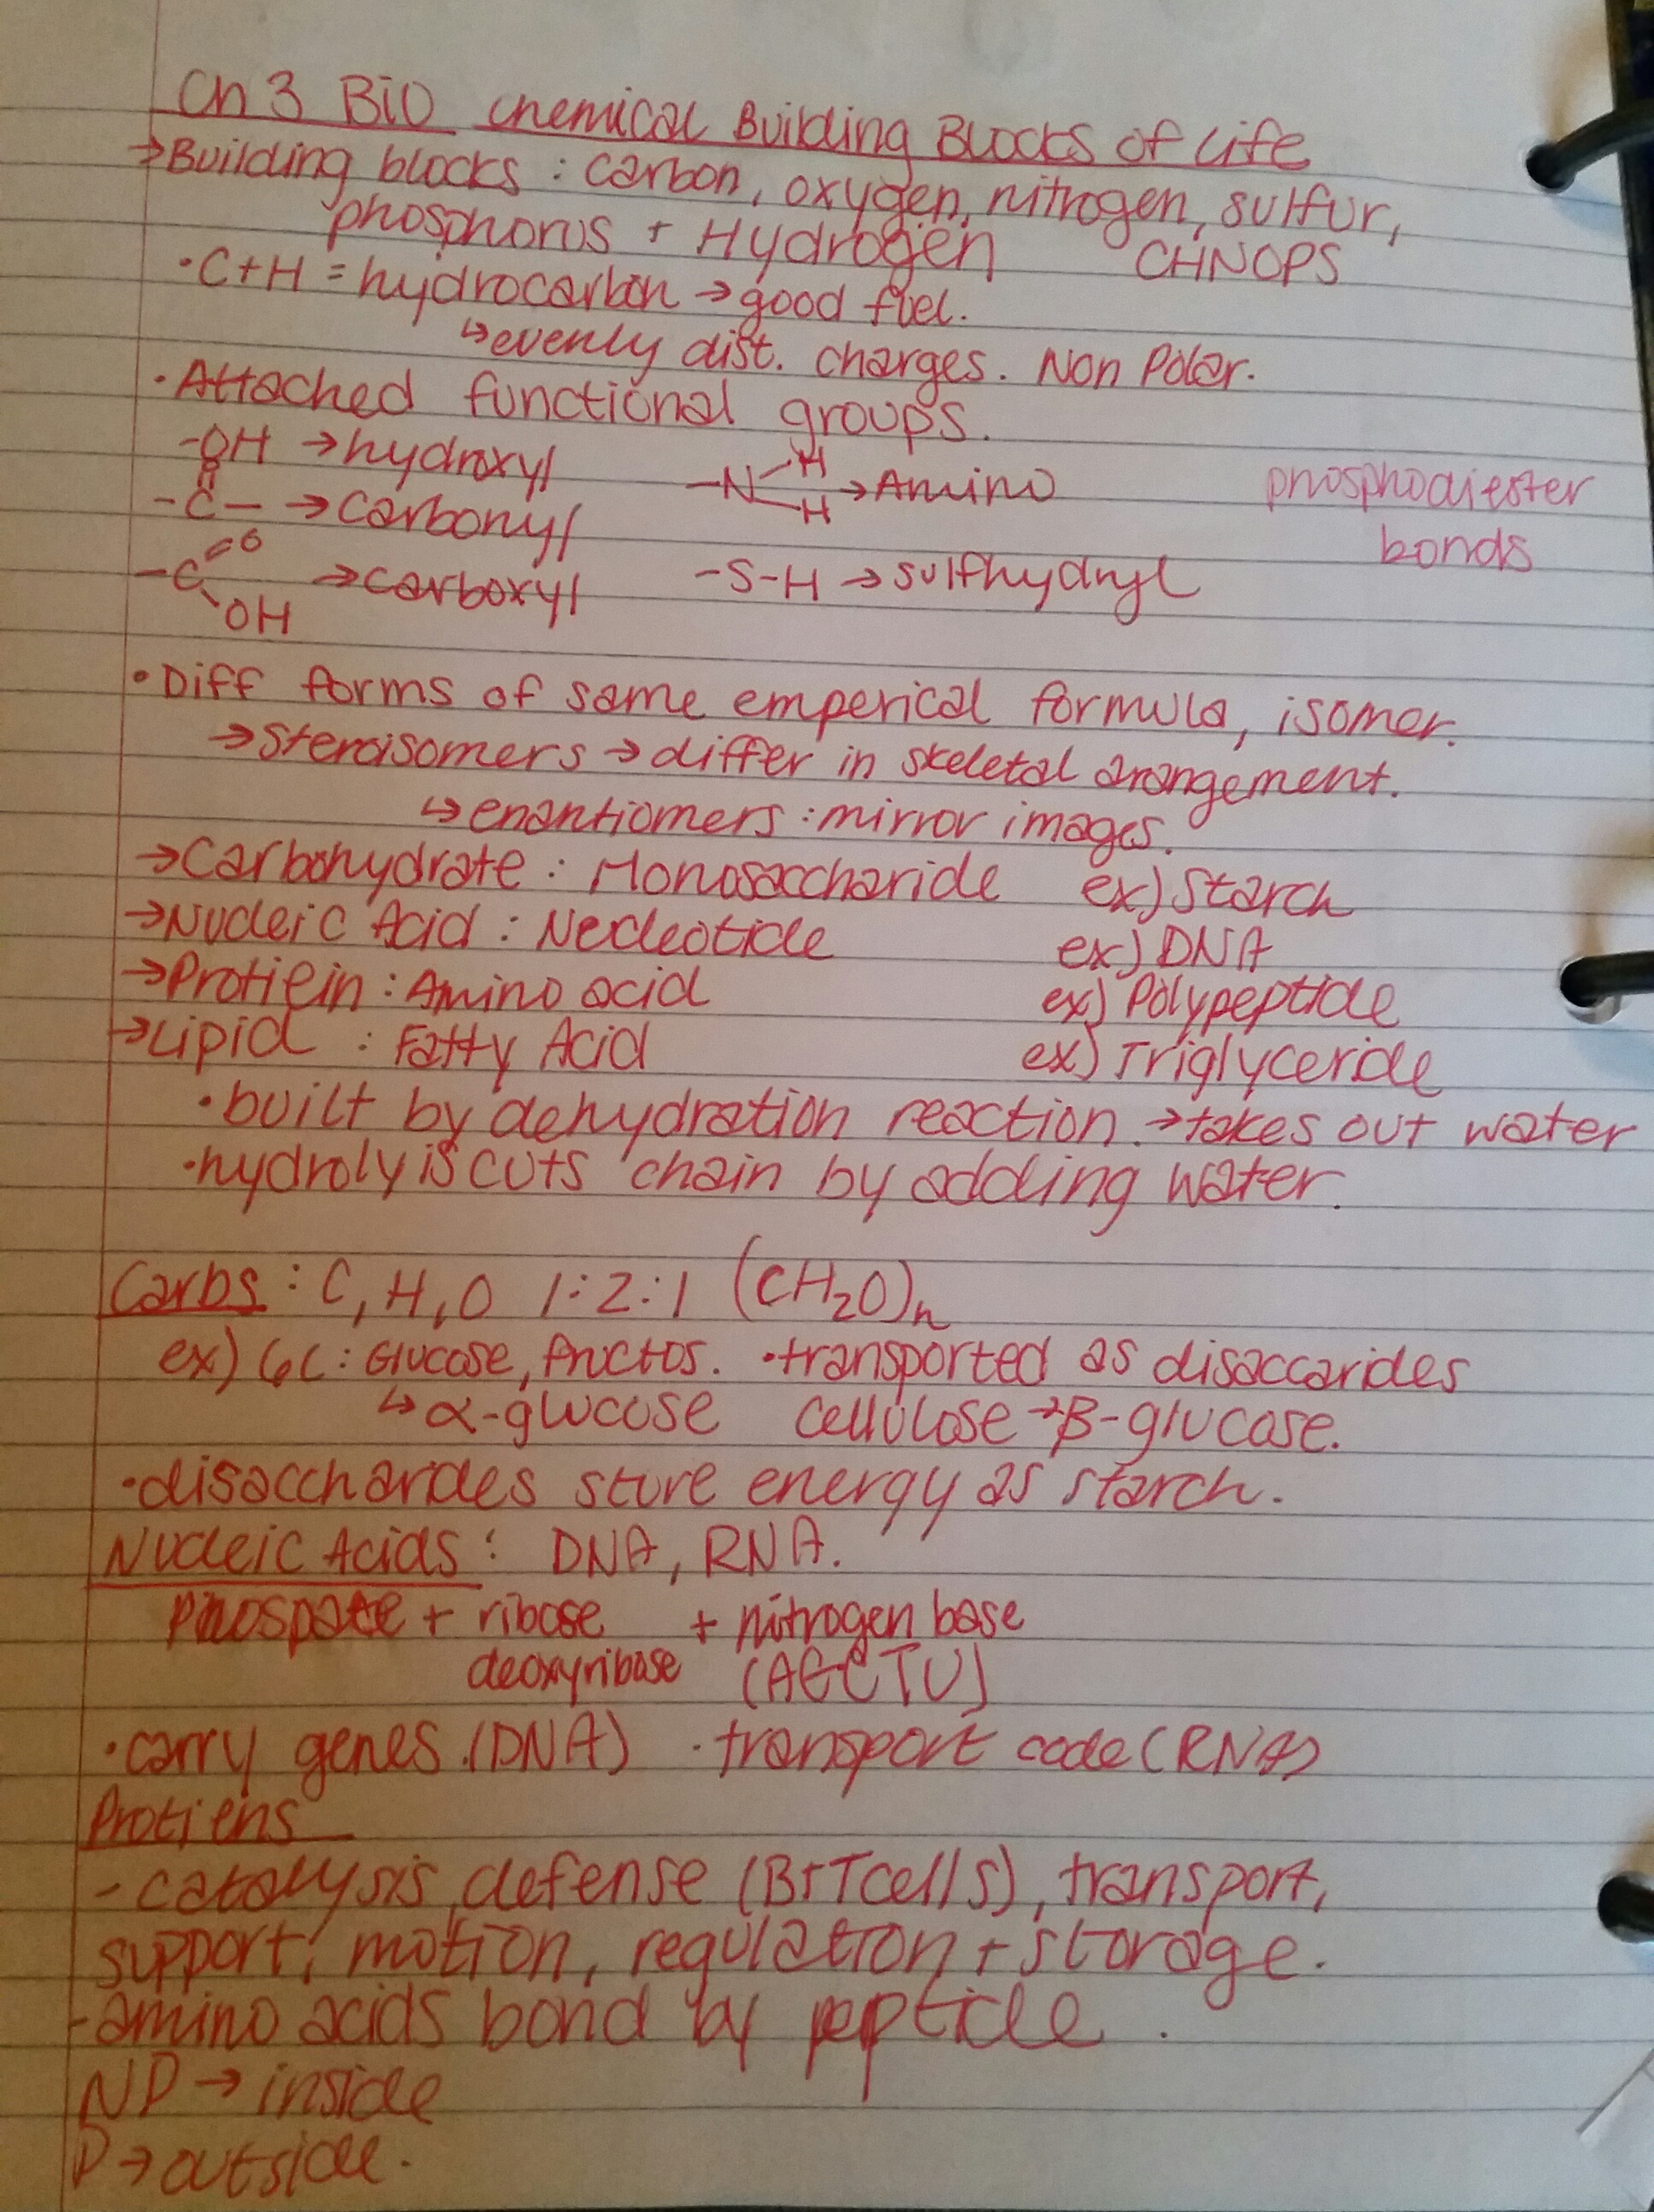 Ch 3 BiO chemical Building Blocks of Life
→Building blocks : carbon, oxygen, nitrogen, sulfur,
phosphorus + Hydrogen CHNOPS
·C+H = hydrocarbon → good fuel.
↳ evenly dist. charges. Non Polar.
·Attached functional groups.
-OH → hydroxyl
-N-H -H → Amino
phosphodiester
bonds
-C- → carbonyl
-C=O OH → carboxyl
-S-H → sulfhydryl
·Diff forms of same emperical formula, isomer.
→ Steroisomers → differ in skeletal arangement.
↳ enantiomers : mirror images.
→Carbohydrate : Monosaccharide ex) Starch
→Nucleic Acid : Necleotide ex) DNA
→Protiein : Amino acid ex) Polypeptide
→Lipid : Fatty Acid ex) Triglyceride
·built by dehydration reaction. → takes out water
·hydrolyis cuts chain by adding water.
Carbs : C, H, O 1:2:1 (CH2O)n
ex) 6C : Glucose, fructos. ·transported as disaccarides
↳ α-glucose cellulose → β-glucose.
·disaccharides store energy as starch.
Nucleic Acids : DNA, RNA.
Phospate + ribose + nitrogen base
deoxyribose (AGCTU)
·carry genes. (DNA) ·transport code (RNA)
Protiens
- catalysis, defense (B+T cells), transport,
support, motion, regulation + storage.
-amino acids bond by peptide .
NP → inside
P → outside.